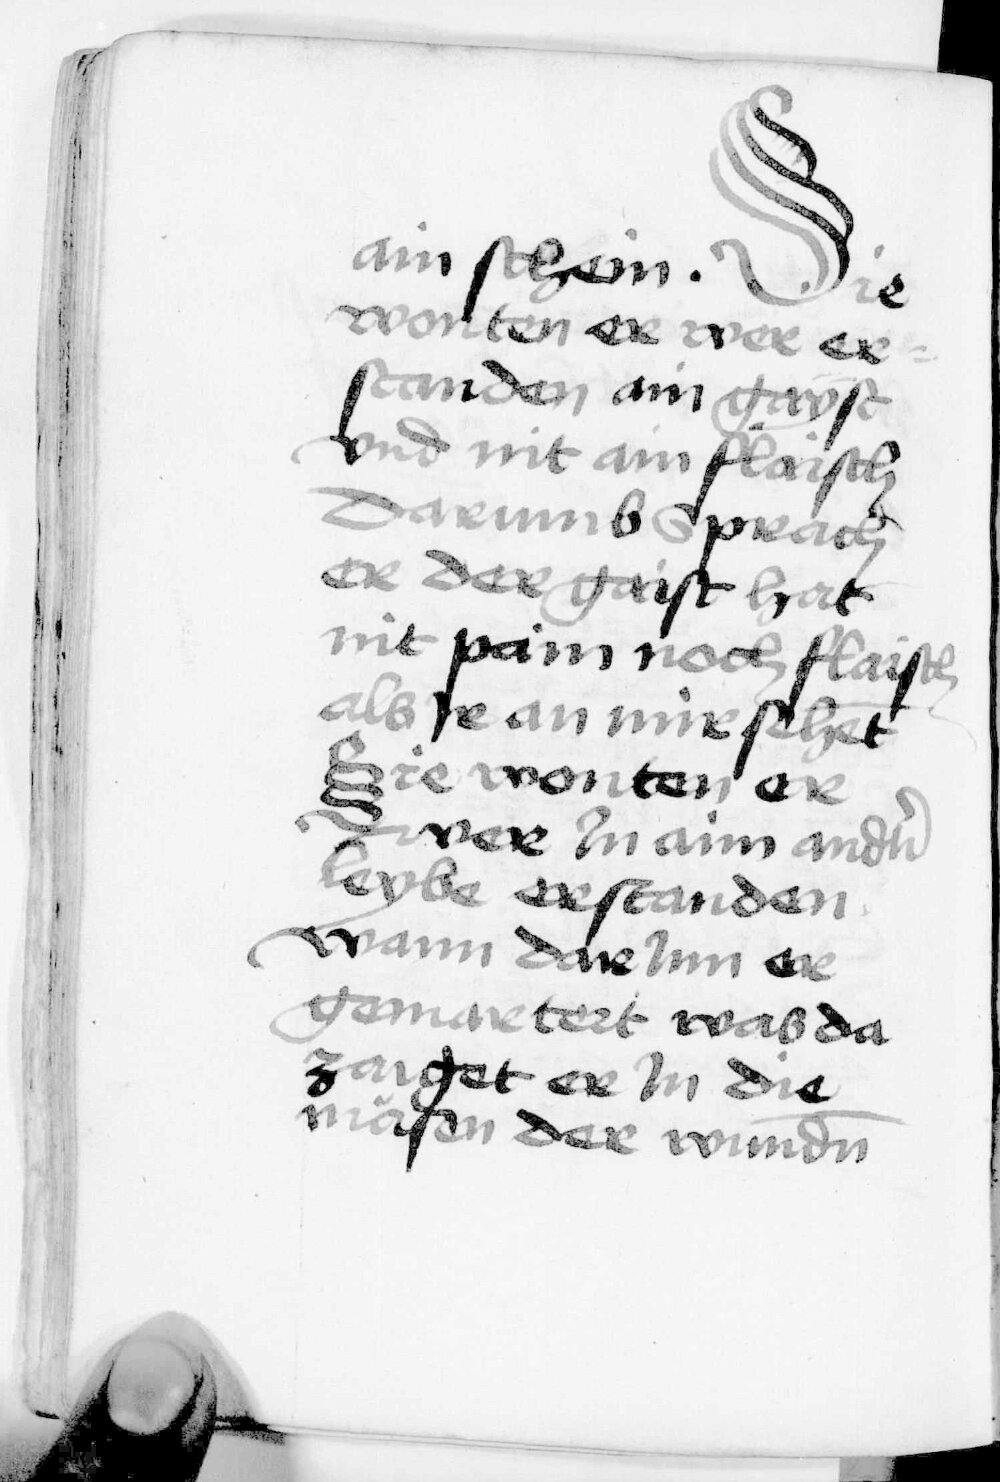 ain schein. Sie
wonten er wer er=
standen ain gayst
vnd nit ain flaisch
Darumb Sprach
er der gaist hat
nit pain noch flaisch
als Ir an mir sehet
Sie wonten er
wer In aim andrn̄
leybe erstanden
wann dar Inn er
gemartert was da
zaiget er In die
mäsen der wundn̄